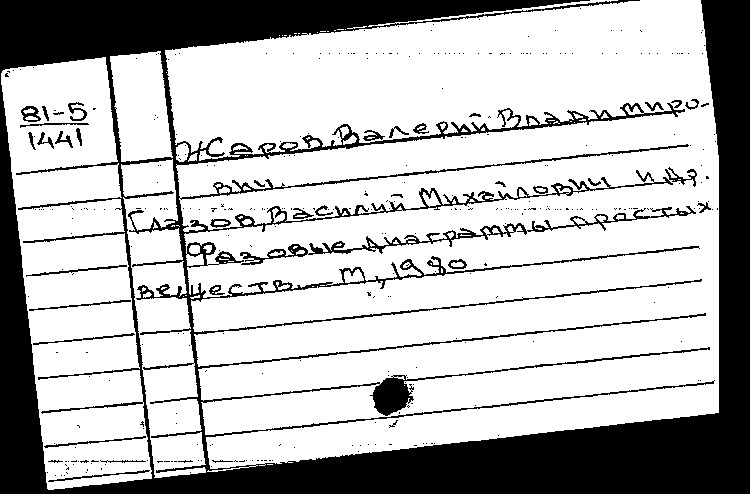 81-5
1441
Жаров, Валерий Владимиро-
вич.
Глазов, Василий Михайлович и др.
Фазовые диаграммы простых
веществ. — М, 1980.